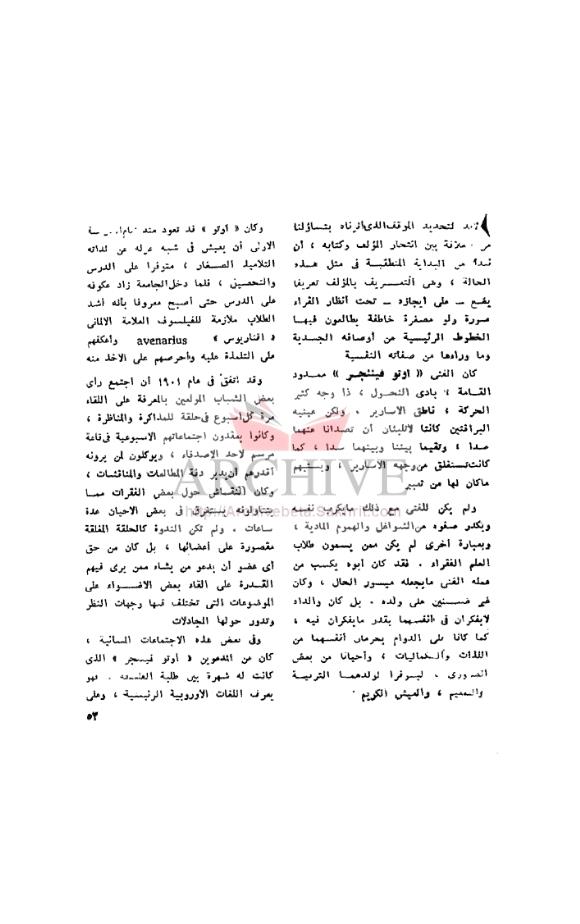 لتحديد الموقف الذى اثرناه بتساؤلنا
علاقة بين انتحار المؤلف وكتابه ، أن
من البداية المنطقية فى مثل هذه
الحالة ، وهى التعريف بالمؤلف تعريفا
يقع — على ايجازه — تحت أنظار القراء
صورة ولو مصغرة خاطفة يطالعون فيها
الخطوط الرئيسية من أوصافه الجسدية
وما وراءها من صفاته النفسية
كان الفتى « اوتو فيننجر » ممدود
القامة ، بادى النحول ، ذا وجه كثير
الحركة ، ناطق الاسارير . ولكن عينيه
البراقتين كانتا لاتلبثان أن تصدانا عنهما
صدا ، وتقيما بيننا وبينهما سدا ، كما
كانت تستغلق من وجهه الاسارير ، ويستبهم
ماكان لها من تعبير
ولم يكن للفتى مع ذلك مايكرب نفسه
ويكدر صفوه من الشواغل والهموم المادية ،
وبعبارة أخرى لم يكن ممن يسمون طلاب
العلم الفقراء . فقد كان أبوه يكسب من
عمله الفنى مايجعله ميسور الحال ، وكان
غير ضنين على ولده . بل كان والداه
لايفكران فى انفسهما بقدر مايفكران فيه ،
كما كانا على الدوام يحرمان أنفسهما من
اللذات والكماليات ، وأحيانا من بعض
الضرورى ، ليوفرا لولدهما التربية
والتعليم ، والعيش الكريم .
وكان « اوتو » قد تعود منذ
الاولى أن يعيش فى شبه عزلة عن لداته
التلاميذ الصغار ، متوفرا على الدرس
والتحصيل ، فلما دخل الجامعة زاد عكوفه
على الدرس حتى أصبح معروفا بأنه أشد
الطلاب ملازمة للفيلسوف العلامة الالمانى
« افناريوس » avenarius وأعكفهم
على التلمذة عليه وأحرصهم على الاخذ منه
وقد اتفق فى عام ١٩٠١ أن اجتمع رأى
بعض الشباب المولعين بالمعرفة على اللقاء
مرة كل أسبوع فى حلقة للمذاكرة والمناظرة ،
وكانوا يعقدون اجتماعاتهم الاسبوعية فى قاعة
مرسم لاحد الاصدقاء ، ويوكلون لمن يرونه
أقدرهم أن يدير دفة المطالعات والمناقشات ،
وكان النقاش حول بعض الفقرات مما
يتناولونه يستغرق فى بعض الاحيان عدة
ساعات . ولم تكن الندوة كالحلقة المغلقة
مقصورة على أعضائها ، بل كان من حق
أى عضو أن يدعو من يشاء ممن يرى فيهم
القدرة على القاء بعض الاضواء على
الموضوعات التى تختلف فيها وجهات النظر
وتدور حولها المجادلات
وفى بعض هذه الاجتماعات المسائية ،
كان من المدعوين « أوتو فيننجر » الذى
كانت له شهرة بين طلبة الفلسفة . فهو
يعرف اللغات الاوروبية الرئيسية ، وعلى
٥٣
ARCHIVE